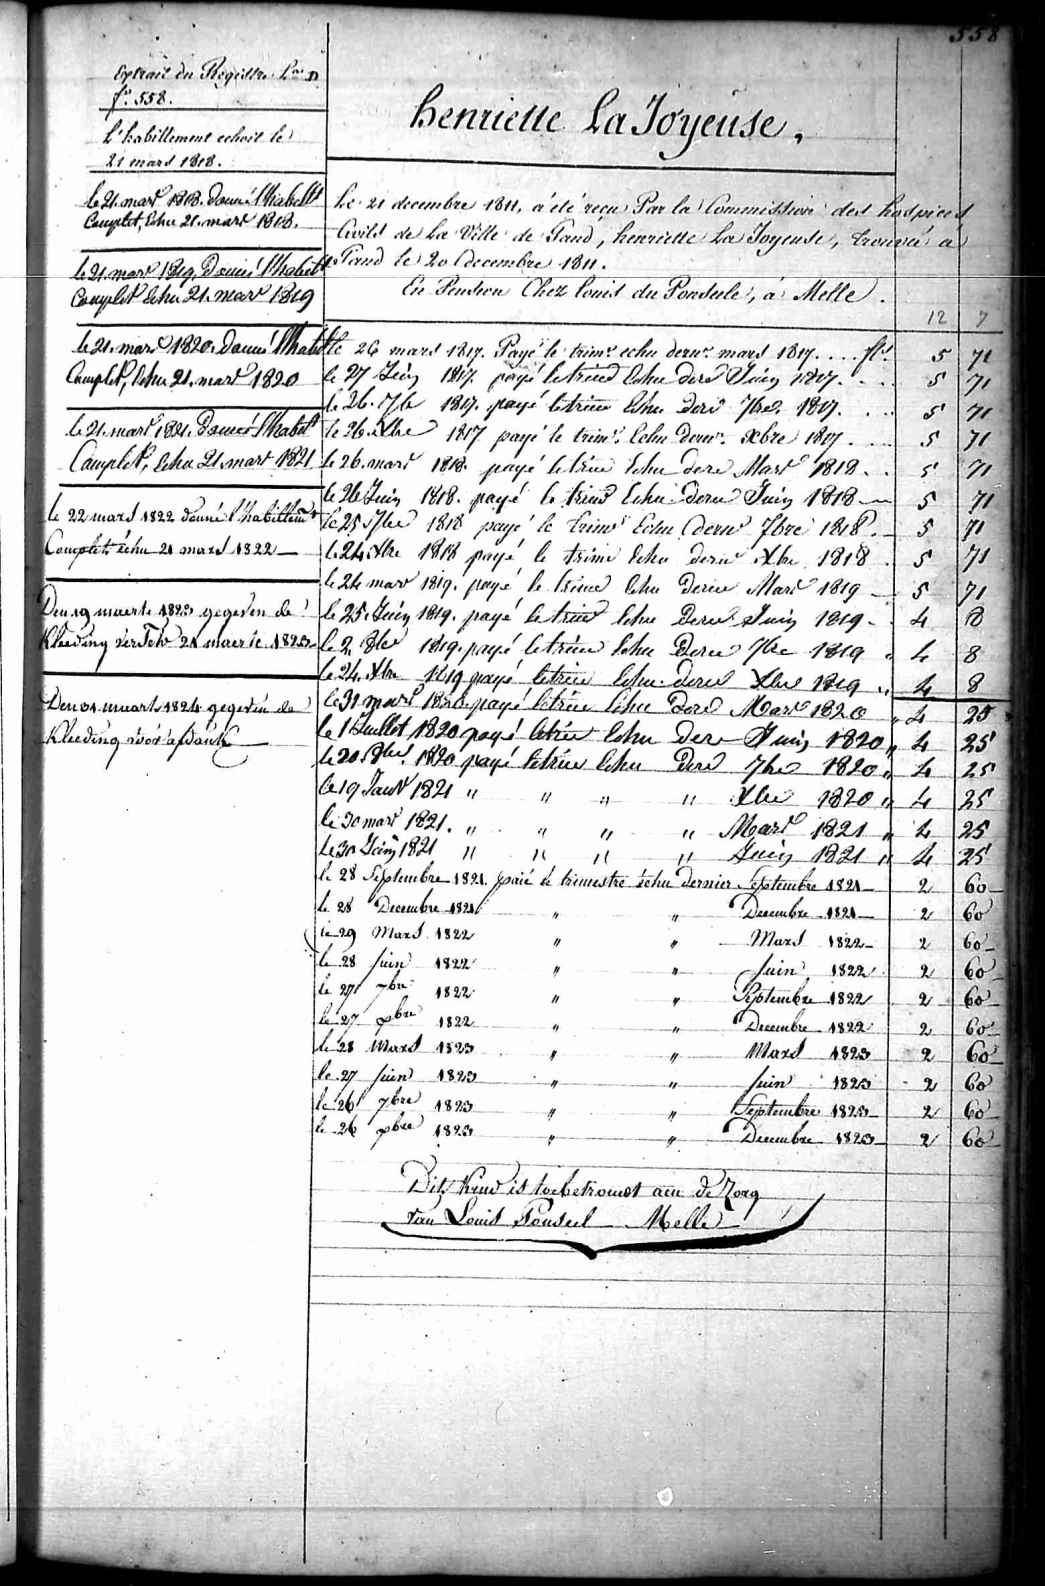 558
Extrait du Registre L.re D
f.o 558.
L'habillement echoit le
21 mars 1818.
le 21. mars 1818. donné l'habillt
Complet, Echu 21. mars 1818.
le 21. mars 1819, Donné l'habillt
Complet Echu 21. mars 1819
le 21. mars 1820. donné l'habillt
Complet, Echu 21. mars 1820
le 21. mars 1821. Donné l'habillt
Complet, Echu 21. mars 1821
le 22 mars 1822 donné l'habillemt
Complet échu 21 mars 1822
Den 19 maerte 1823 gegeven de
Kleeding 21 maerte 1823
Den 31 maarts 1824 gegeven de
Kleeding
henriette La Joyeuse,
Le 21 decembre 1811, a été reçu Par la Commission des hospices
Civils de La Ville de Gand, henriette La Joyeuse, trouvée à
Gand le 20 decembre 1811.
En Pension Chez Louis du Ponseele, à Melle.
12 7
le 26 mars 1817. Payé le trimre echu dernr mars 1817. . . . fls. 5 71
le 27 Juin 1817. payé letrime Echu derr Juin 1817. . . . 5 71
le 26. 7bre 1817. payé letrime Echu derr 7bre. 1817. . . . 5 71
le 26. Xbre 1817 payé le trimre. Echu dernr. xbre 1817 . . . 5 71
le 26. mars 1818. payé letrime Echu dere Mars 1818. . 5 71
le 26 Juin 1818. payé le trime Echu derre Juin 1818 5 71
le 25 7bre 1818 payé le trimre Echu dernr 7bre 1818. 5 71
le 24 Xbre 1818 payé le trime Echu derre Xbre 1818 . 5 71
le 24 mars 1819. payé le trime Echu Derre Mars 1819 5 71
le 25. Juin 1819. payé letrime Echu Derre Juin 1819 - 4 8
le 2 8bre 1819. payé letrime Echu Derre 7bre 1819 " 4 8
le 24. Xbre 1819 payé letrime Echu derre Xbre 1819 " 4 8
le 31 mars 1820. payé letrime Echu Dere Mars 1820 " 4 25
le 1 Juillet 1820 payé letrime Echu dere Juin 1820 " 4 25
le 20. 8bre. 1820 payé letrime Echu Dere 7bre 1820 " 4 25
le 19 Janvr 1821 " " " " Xbre 1820 " 4 25
le 30 mars 1821. " " " " Mars 1821 " 4 25
le 30 Juin 1821 " " " " Juin 1821 " 4 25
le 28 Septembre 1821. paié le trimestre échu dernier Septembre 1821 2 60
le 28 Decembre 1821 " " Decembre 1821 2 60
le 29 Mars 1822 " " Mars 1822 2 60
le 28 Juin 1822 " " Juin 1822 2 60
le 27 7bre 1822 " " Septembre 1822 2 60
le 27 xbre 1822 " " Decembre 1822 2 60
le 28 Mars 1823 " " Mars 1823 2 60
le 27 Juin 1823 " " Juin 1823 2 60
le 26 7bre 1823 " " Septembre 1823 2 60
le 26 xbre 1823 " " Decembre 1823 2 60
Dit Kind is toebetrouwt aen de Zorg
van Louis Ponseel Melle